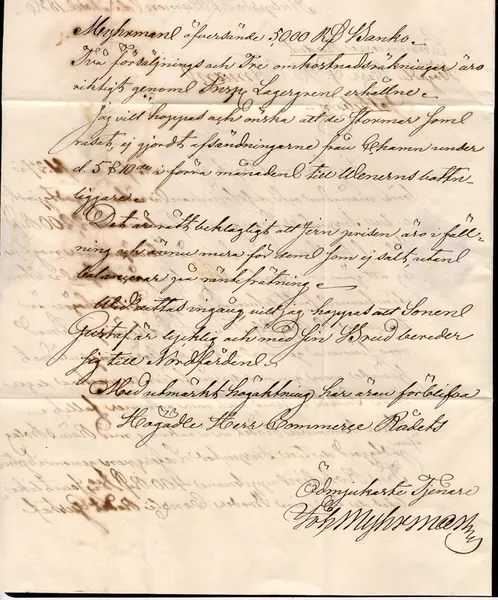 Myhrman öfversände 5,000 RD Banko.
Två försäljnings och Tre omkostnadsräkningar äro
riktigt genom Lagergren erhållne.
Jag vill hoppas och önska att de stormar som
rasat, ej gjordt afsändningarne från Chamn under
d. 5 & 10 i förra månaden till Wenerns botten-
liggare.
Det är rätt beklagligt att Jern prisen äro i fall-
ning och ännu mera för dem som ej sålt, utan
balancerar på ränkfrätning.
Wid dettas ingång vill jag hoppas att Sonen
Gustaf är lycklig och med sin Brud bereder
sig till Nordfärden.
Med utmärkt högaktning har äran förblifva
Högädle Herr Commerce Rådets
Ödmjukaste Tjenare
Myhrman